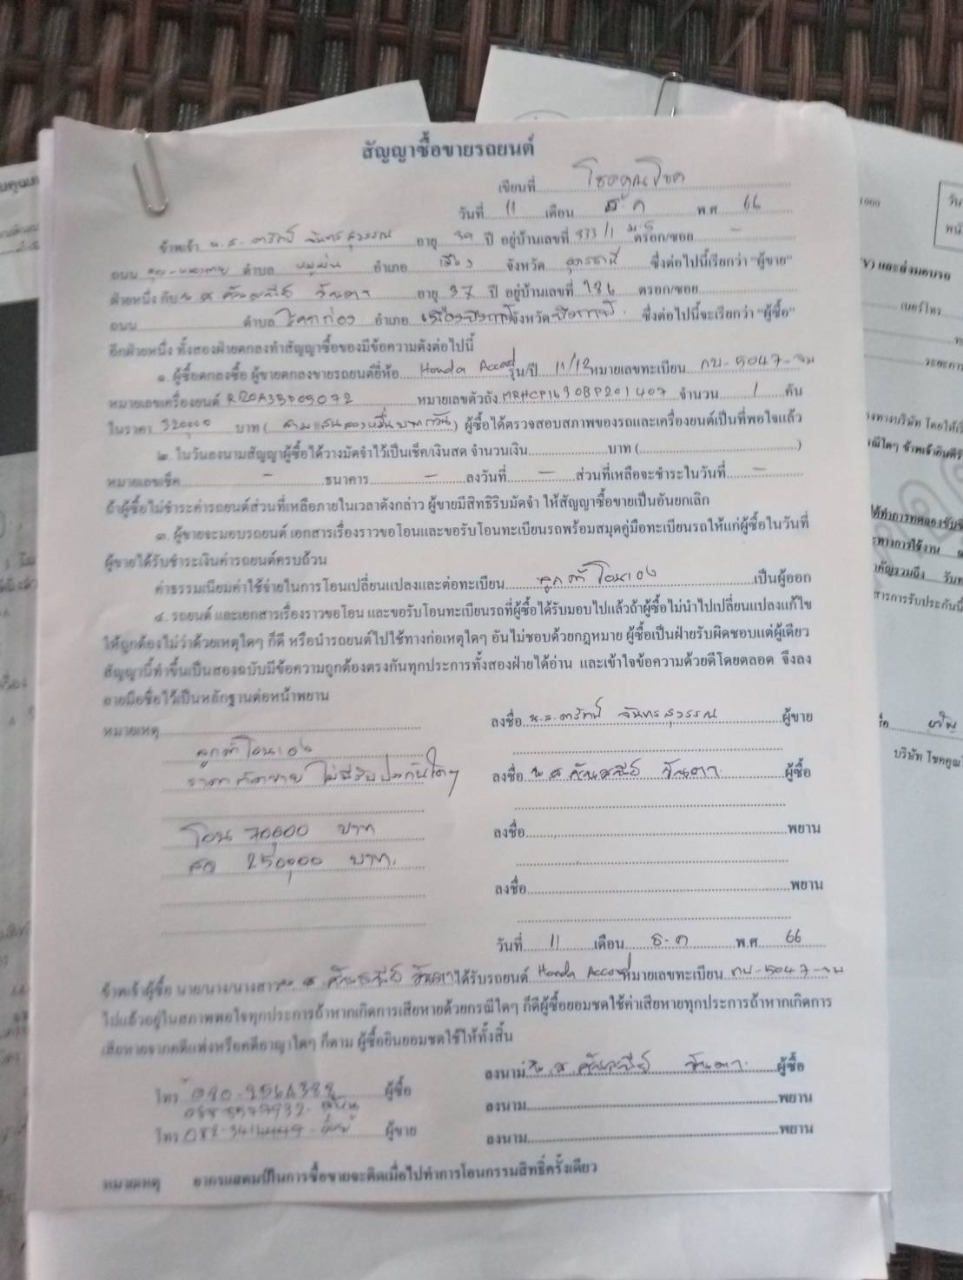 สัญญาซื้อขายรถยนต์
เขียนที่ โชคคูณโชค
วันที่ 11 เดือน ธ.ค พ.ศ 66
ข้าพเจ้า น.ส. ดารัตน์ จันทรสุวรรณ อายุ ปี อยู่บ้านเลขที่ 333/1 ตรอก/ซอย -
ถนน ตำบล หมูม่น อำเภอ เมือง จังหวัด อุดรธานี ซึ่งต่อไปนี้เรียกว่า "ผู้ขาย"
ฝ่ายหนึ่ง กับ น.ส อายุ 37 ปี อยู่บ้านเลขที่ 186 ตรอก/ซอย
ถนน ตำบล โคกก่อง อำเภอ เมืองบึงกาฬ จังหวัด บึงกาฬ ซึ่งต่อไปนี้จะเรียกว่า "ผู้ซื้อ"
อีกฝ่ายหนึ่ง ทั้งสองฝ่ายตกลงทำสัญญาซื้อของมีข้อความดังต่อไปนี้
๑. ผู้ซื้อตกลงซื้อ ผู้ขายตกลงขายรถยนต์ยี่ห้อ Honda Accord รุ่น/ปี 11/12 หมายเลขทะเบียน กบ-5047-
หมายเลขเครื่องยนต์ หมายเลขตัวถัง MRHCP1630BP201407 จำนวน 1 คัน
ในราคา 320000 บาท ( สามแสนสองหมื่นบาทถ้วน ) ผู้ซื้อได้ตรวจสอบสภาพของรถและเครื่องยนต์เป็นที่พอใจแล้ว
๒. ในวันลงนามสัญญาผู้ซื้อได้วางมัดจำไว้เป็นเช็ค/เงินสด จำนวนเงิน บาท ( )
หมายเลขเช็ค - ธนาคาร - ลงวันที่ - ส่วนที่เหลือจะชำระในวันที่ -
ถ้าผู้ซื้อไม่ชำระค่ารถยนต์ส่วนที่เหลือภายในเวลาดังกล่าว ผู้ขายมีสิทธิริบมัดจำ ให้สัญญาซื้อขายเป็นอันยกเลิก
๓. ผู้ขายจะมอบรถยนต์ เอกสารเรื่องราวขอโอนและขอรับโอนทะเบียนรถพร้อมสมุดคู่มือทะเบียนรถให้แก่ผู้ซื้อในวันที่
ผู้ขายได้รับชำระเงินค่ารถยนต์ครบถ้วน
ค่าธรรมเนียมค่าใช้จ่ายในการโอนเปลี่ยนแปลงและต่อทะเบียน ลูกค้าโอนเอง เป็นผู้ออก
๔. รถยนต์ และเอกสารเรื่องราวขอโอน และขอรับโอนทะเบียนรถที่ผู้ซื้อได้รับมอบไปแล้วถ้าผู้ซื้อไม่นำไปเปลี่ยนแปลงแก้ไข
ให้ถูกต้องไม่ว่าด้วยเหตุใดๆ ก็ดี หรือนำรถยนต์ไปใช้ทางก่อเหตุใดๆ อันไม่ชอบด้วยกฎหมาย ผู้ซื้อเป็นฝ่ายรับผิดชอบแต่ผู้เดียว
สัญญานี้ทำขึ้นเป็นสองฉบับมีข้อความถูกต้องตรงกันทุกประการทั้งสองฝ่ายได้อ่าน และเข้าใจข้อความด้วยดีโดยตลอด จึงลง
ลายมือชื่อไว้เป็นหลักฐานต่อหน้าพยาน
หมายเหตุ
ลูกค้าโอนเอง
ราคาตัดขาย ไม่มีรับประกันใดๆ
โอน 70000 บาท
สด 250000 บาท.
ลงชื่อ น.ส. ดารัตน์ จันทรสุวรรณ ผู้ขาย
ลงชื่อ น.ส ผู้ซื้อ
ลงชื่อ พยาน
ลงชื่อ พยาน
วันที่ 11 เดือน ธ.ค พ.ศ 66
ข้าพเจ้าผู้ซื้อ นาย/นาง/นางสาว ได้รับรถยนต์ Honda Accord ที่มายเลขทะเบียน กบ-5047-
ไปแล้วอยู่ในสภาพพอใจทุกประการถ้าหากเกิดการเสียหายด้วยกรณีใดๆ ก็ดีผู้ซื้อยอมชดใช้ค่าเสียหายทุกประการถ้าหากเกิดการ
เสียหายจากคดีแพ่งหรือคดีอาญาใดๆ ก็ตาม ผู้ซื้อยินยอมชดใช้ให้ทั้งสิ้น
ลงนาม น.ส ผู้ซื้อ
โทร ผู้ซื้อ
ลงนาม พยาน
โทร ผู้ขาย
ลงนาม พยาน
หมายเหตุ อากรแสตมป์ในการซื้อขายจะติดเมื่อไปทำการโอนกรรมสิทธิ์ครั้งเดียว